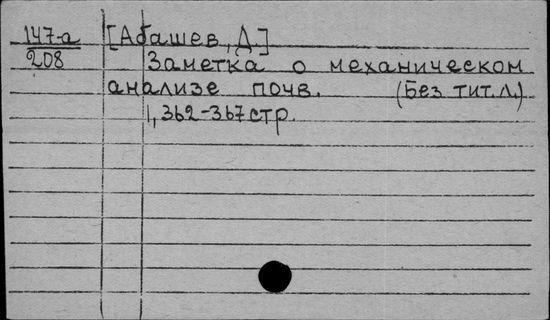 147-а [Абашев, Д.]
208 Заметка о механическом
анализе почв. (Без тит. л.)
1, 362-367 стр.